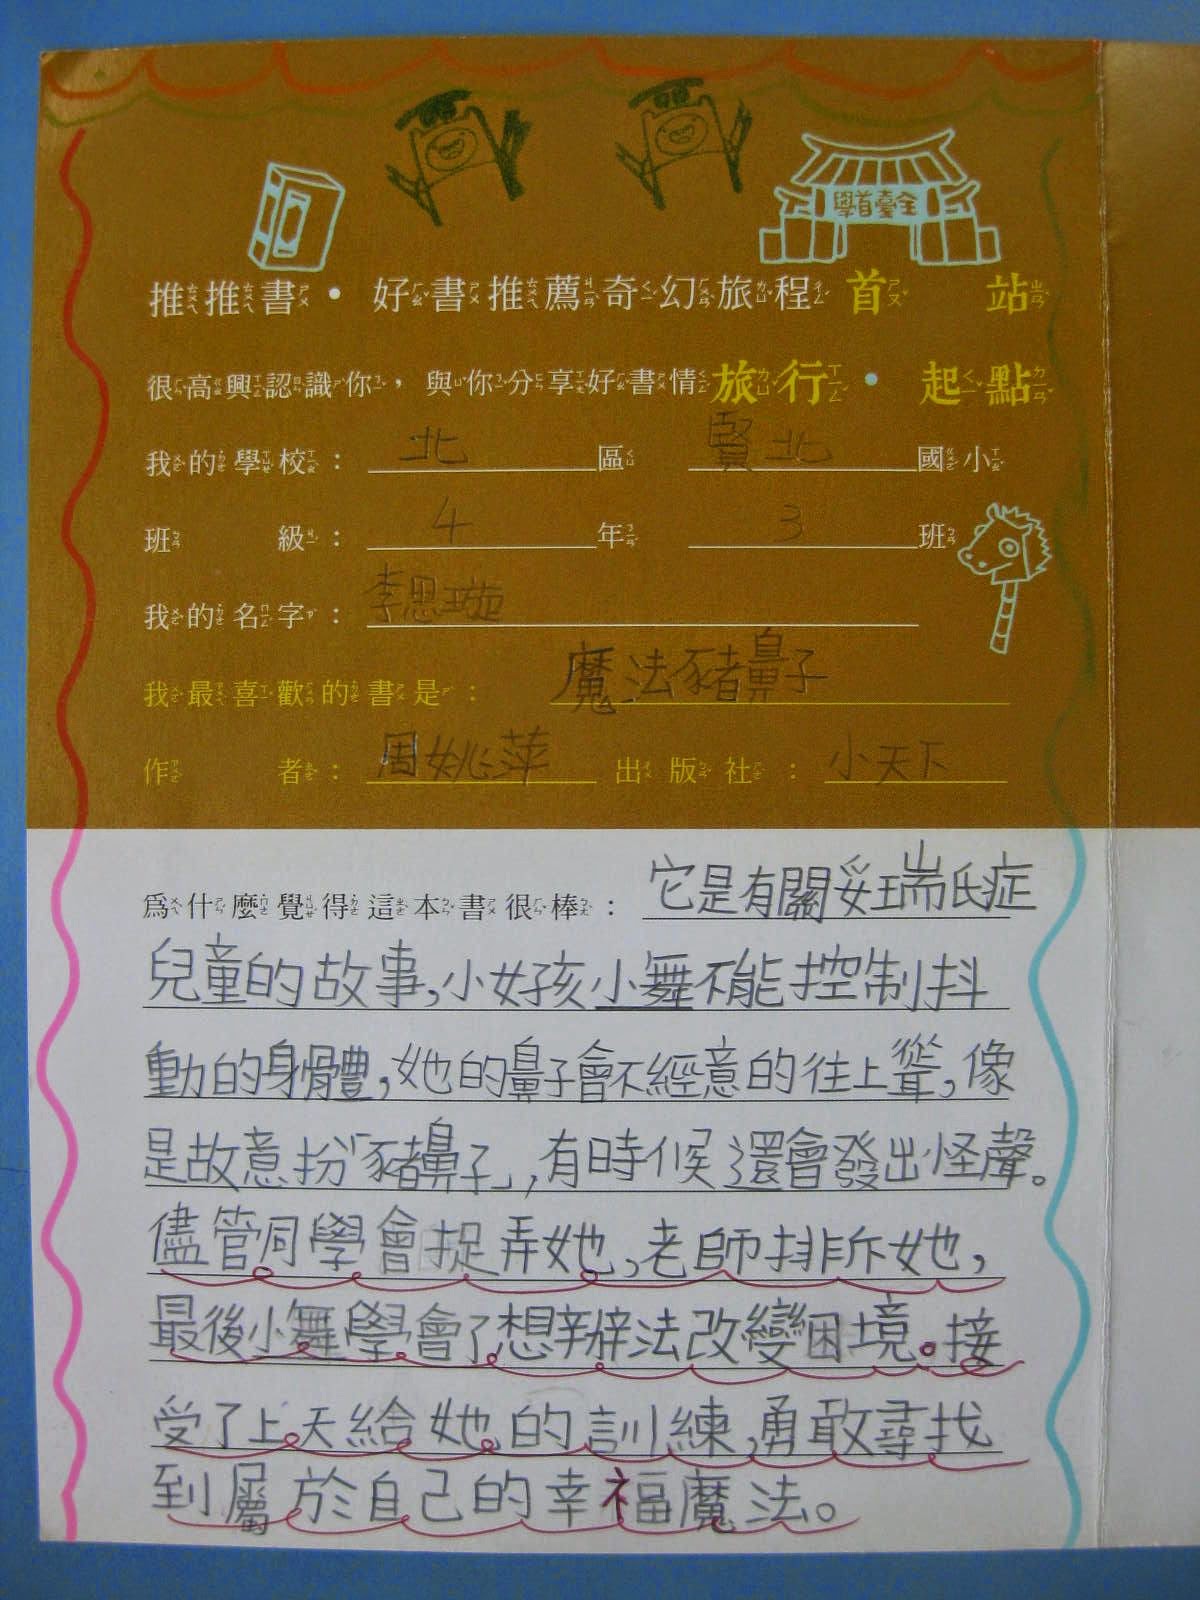 全臺首學
推推書・好書推薦奇幻旅程 首站
很高興認識你，與你分享好書情 旅行・起點
我的學校：北區 賢北國小
班級：4年 3班
我的名字：李思璇
我最喜歡的書是：魔法豬鼻子
作者：周姚萍 出版社：小天下
為什麼覺得這本書很棒：它是有關妥瑞氏症
兒童的故事,小女孩小舞不能控制抖
動的身體,她的鼻子會不經意的往上聳,像
是故意扮「豬鼻子」,有時候還會發出怪聲。
儘管同學會捉弄她,老師排斥她,
最後小舞學會了想辦法改變困境。接
受了上天給她的訓練,勇敢尋找
到屬於自己的幸福魔法。